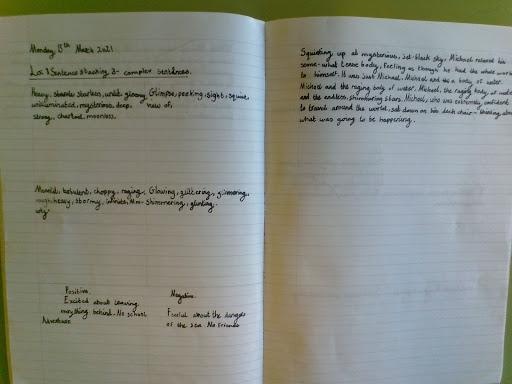 Monday 8th March 2021
L.o: Sentence stacking 3- complex sentences.
Heavy, starless, unlit, gloomy, Glimpse, peeking, sight, squint,
unilluminated, mysterious, deep. view of,
strong, charted, moonless.
turbulent, choppy, raging, Glowing, glittering, glimmering,
rough, heavy, stormy, infinite, shimmering, glinting.
Positive.
Excited about leaving
everything behind. No school
Adventure
Negative.
Fearful about the dangers
of the sea. No Friends
Squinting up at mysterious, jet-black sky, Michael relaxed his
some-what tense body, feeling as though he had the whole world
to himself. It was just Michael. Michael and the body of water.
Michael and the raging body of water. Michael, the raging body of water
and the endless, shimmering stars. Michael, who was extremely confident
to travel around the world, sat down on his deck chair - thinking about
what was going to be happening.